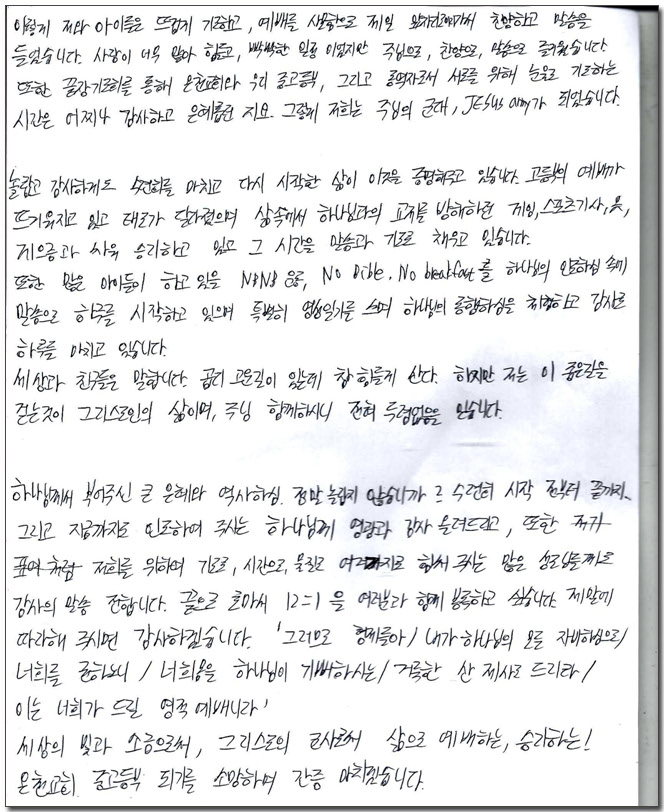 이렇게 저와 아이들은 뜨겁게 기도하고, 예배를 생활함으로 제일 앞자리에가서 찬양하고 말씀을
들었습니다. 사람이 너무 많아 힘들고, 빡빡한 일정 이었지만 주님으로, 찬양으로, 말씀으로 즐거웠습니다
또한 골방기도회를 통해 온천교회와 우리 중고등부, 그리고 동역자로서 서로를 위해 눈물로 기도하는
시간은 어찌나 감사하고 은혜롭던 지요. 그렇게 저희는 주님의 군대, JESus army가 되었습니다.
놀랍고 감사하게도 수련회를 마치고 다시 시작한 삶이 이것을 증명해주고 있습니다. 고등부의 예배가
뜨거워지고 있고 태도가 달라졌으며 삶속에서 하나님과의 교제를 방해하던 게임, 스포츠기사, 옷,
게으름과 싸워 승리하고 있고 그 시간을 말씀과 기도로 채우고 있습니다.
또한 많은 아이들이 하고있을 NBNB 운동, No Bible. No breakfast를 하나님의 인도하심 속에
말씀으로 하루를 시작하고 있으며 특별히 영성일기를 쓰며 하나님의 동행하심을 체험하고 감사로
하루를 마치고 있습니다.
세상과 친구들은 말합니다. 곱디 고운길이 있는데 참 힘들게 산다. 하지만 저는 이 좁은길을
걷는것이 그리스도인의 삶이며, 주님 함께하시니 전혀 두렵없음을 믿습니다.
하나님께서 부어주신 큰 은혜와 역사하심. 정말 놀랍지 않습니까? 수련회 시작 전부터 끝까지.
그리고 지금까지도 인도하여 주시는 하나님께 영광과 감사 올려드리고, 또한 저가
표어처럼 저희를 위하여 기도로, 시간으로, 물질로 여러가지로 힘써 주시는 많은 성도님들께도
감사의 말씀 전합니다. 끝으로 로마서 12:1 을 여러분과 함께 봉독하고 싶습니다. 제말에
따라해 주시면 감사하겠습니다. '그러므로 형제들아/ 내가 하나님의 모든 자비하심으로/
너희를 권하노니 / 너희몸을 하나님이 기뻐하시는/ 거룩한 산 제사로 드리라/
이는 너희가 드릴 영적 예배니라'
세상의 빛과 소금으로써, 그리스도의 군사로써 삶으로 예배하는, 승리하는!
온천교회 중고등부 되기를 소망하며 간증 마치겠습니다.